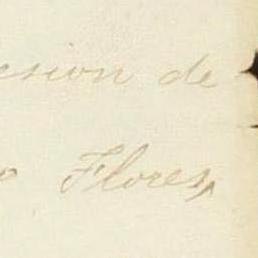 esion de
o Flores,